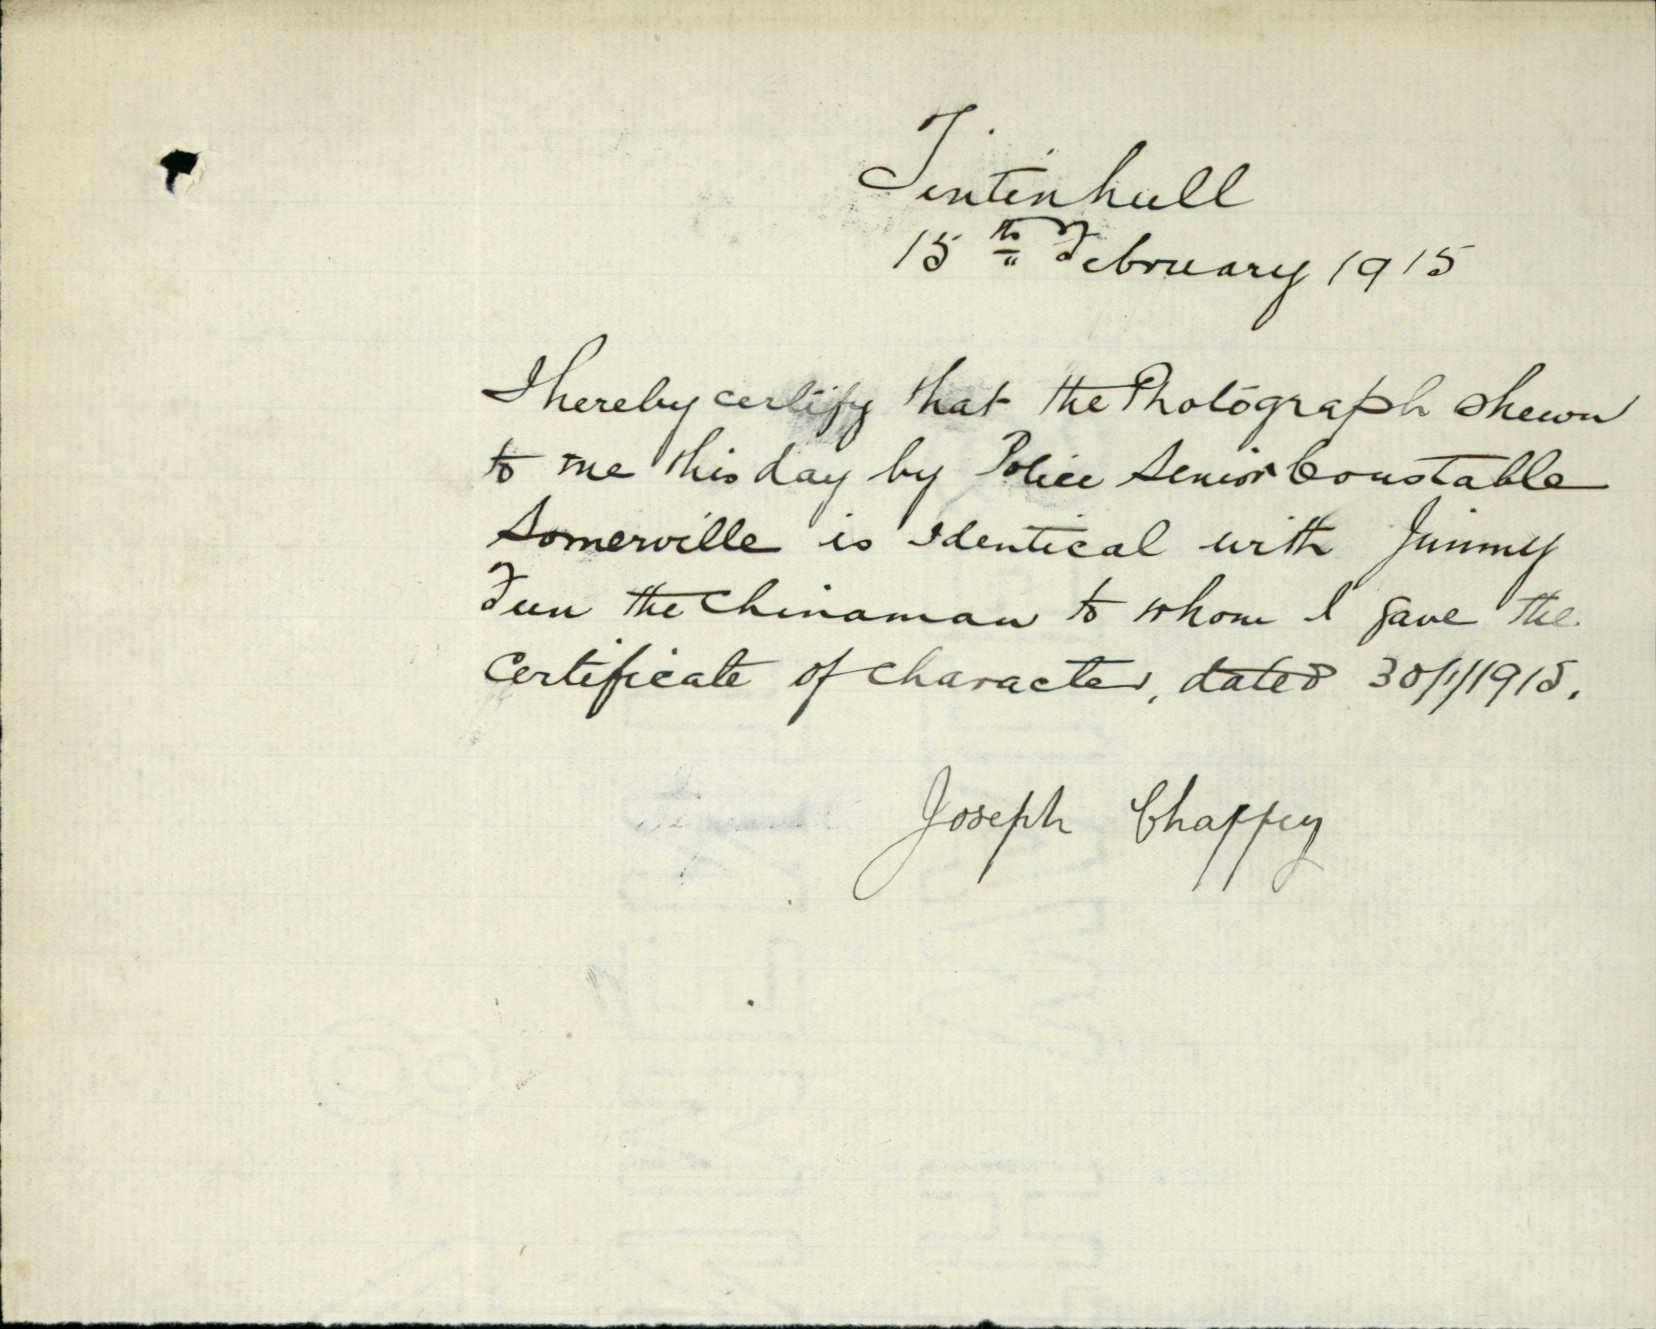 Tintinhull
15th February 1915
I hereby certify that the Photograph shewn
to me this day by Police Senior Constable
Somerville is identical with Jimmy
Fun the Chinaman to whom I gave the
Certificate of Character, dated 30/1/1915.
Joseph Chaffey